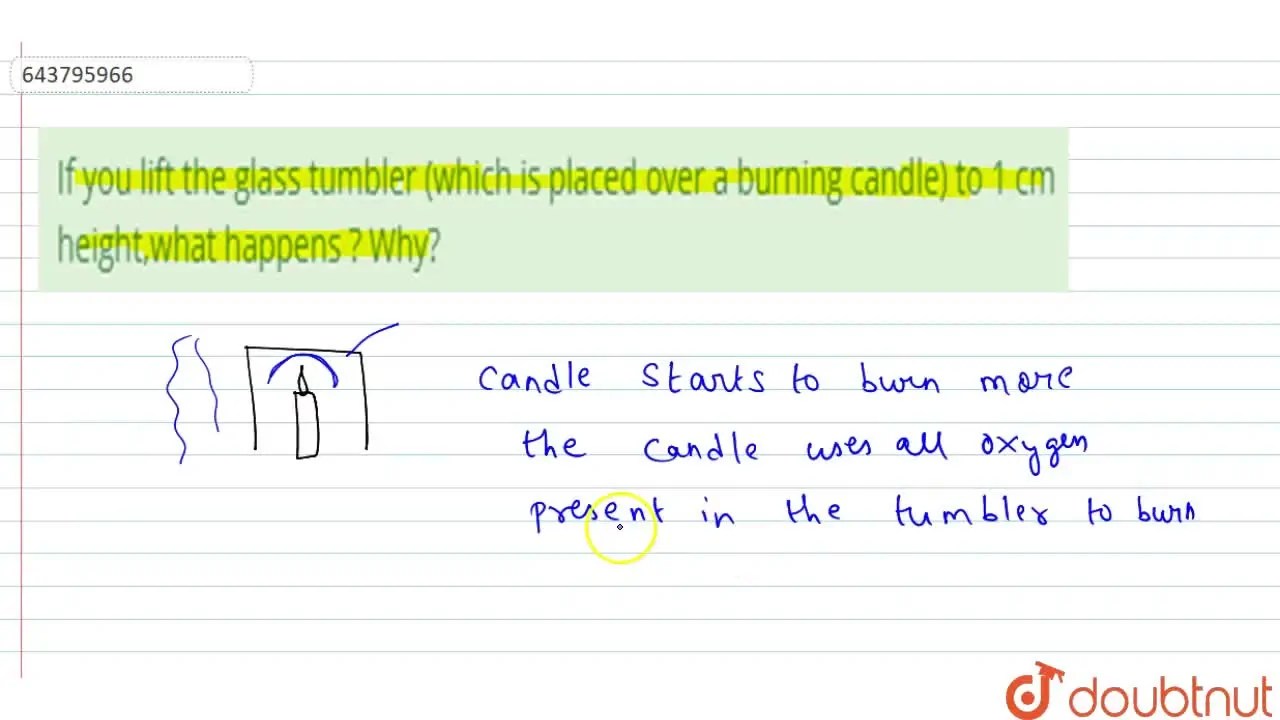 643795966
If you lift the glass tumbler (which is placed over a burning candle) to 1 cm
height,what happens ? Why?
Candle starts to burn more
the candle uses all oxygen
present in the tumbler to burn
doubtnut